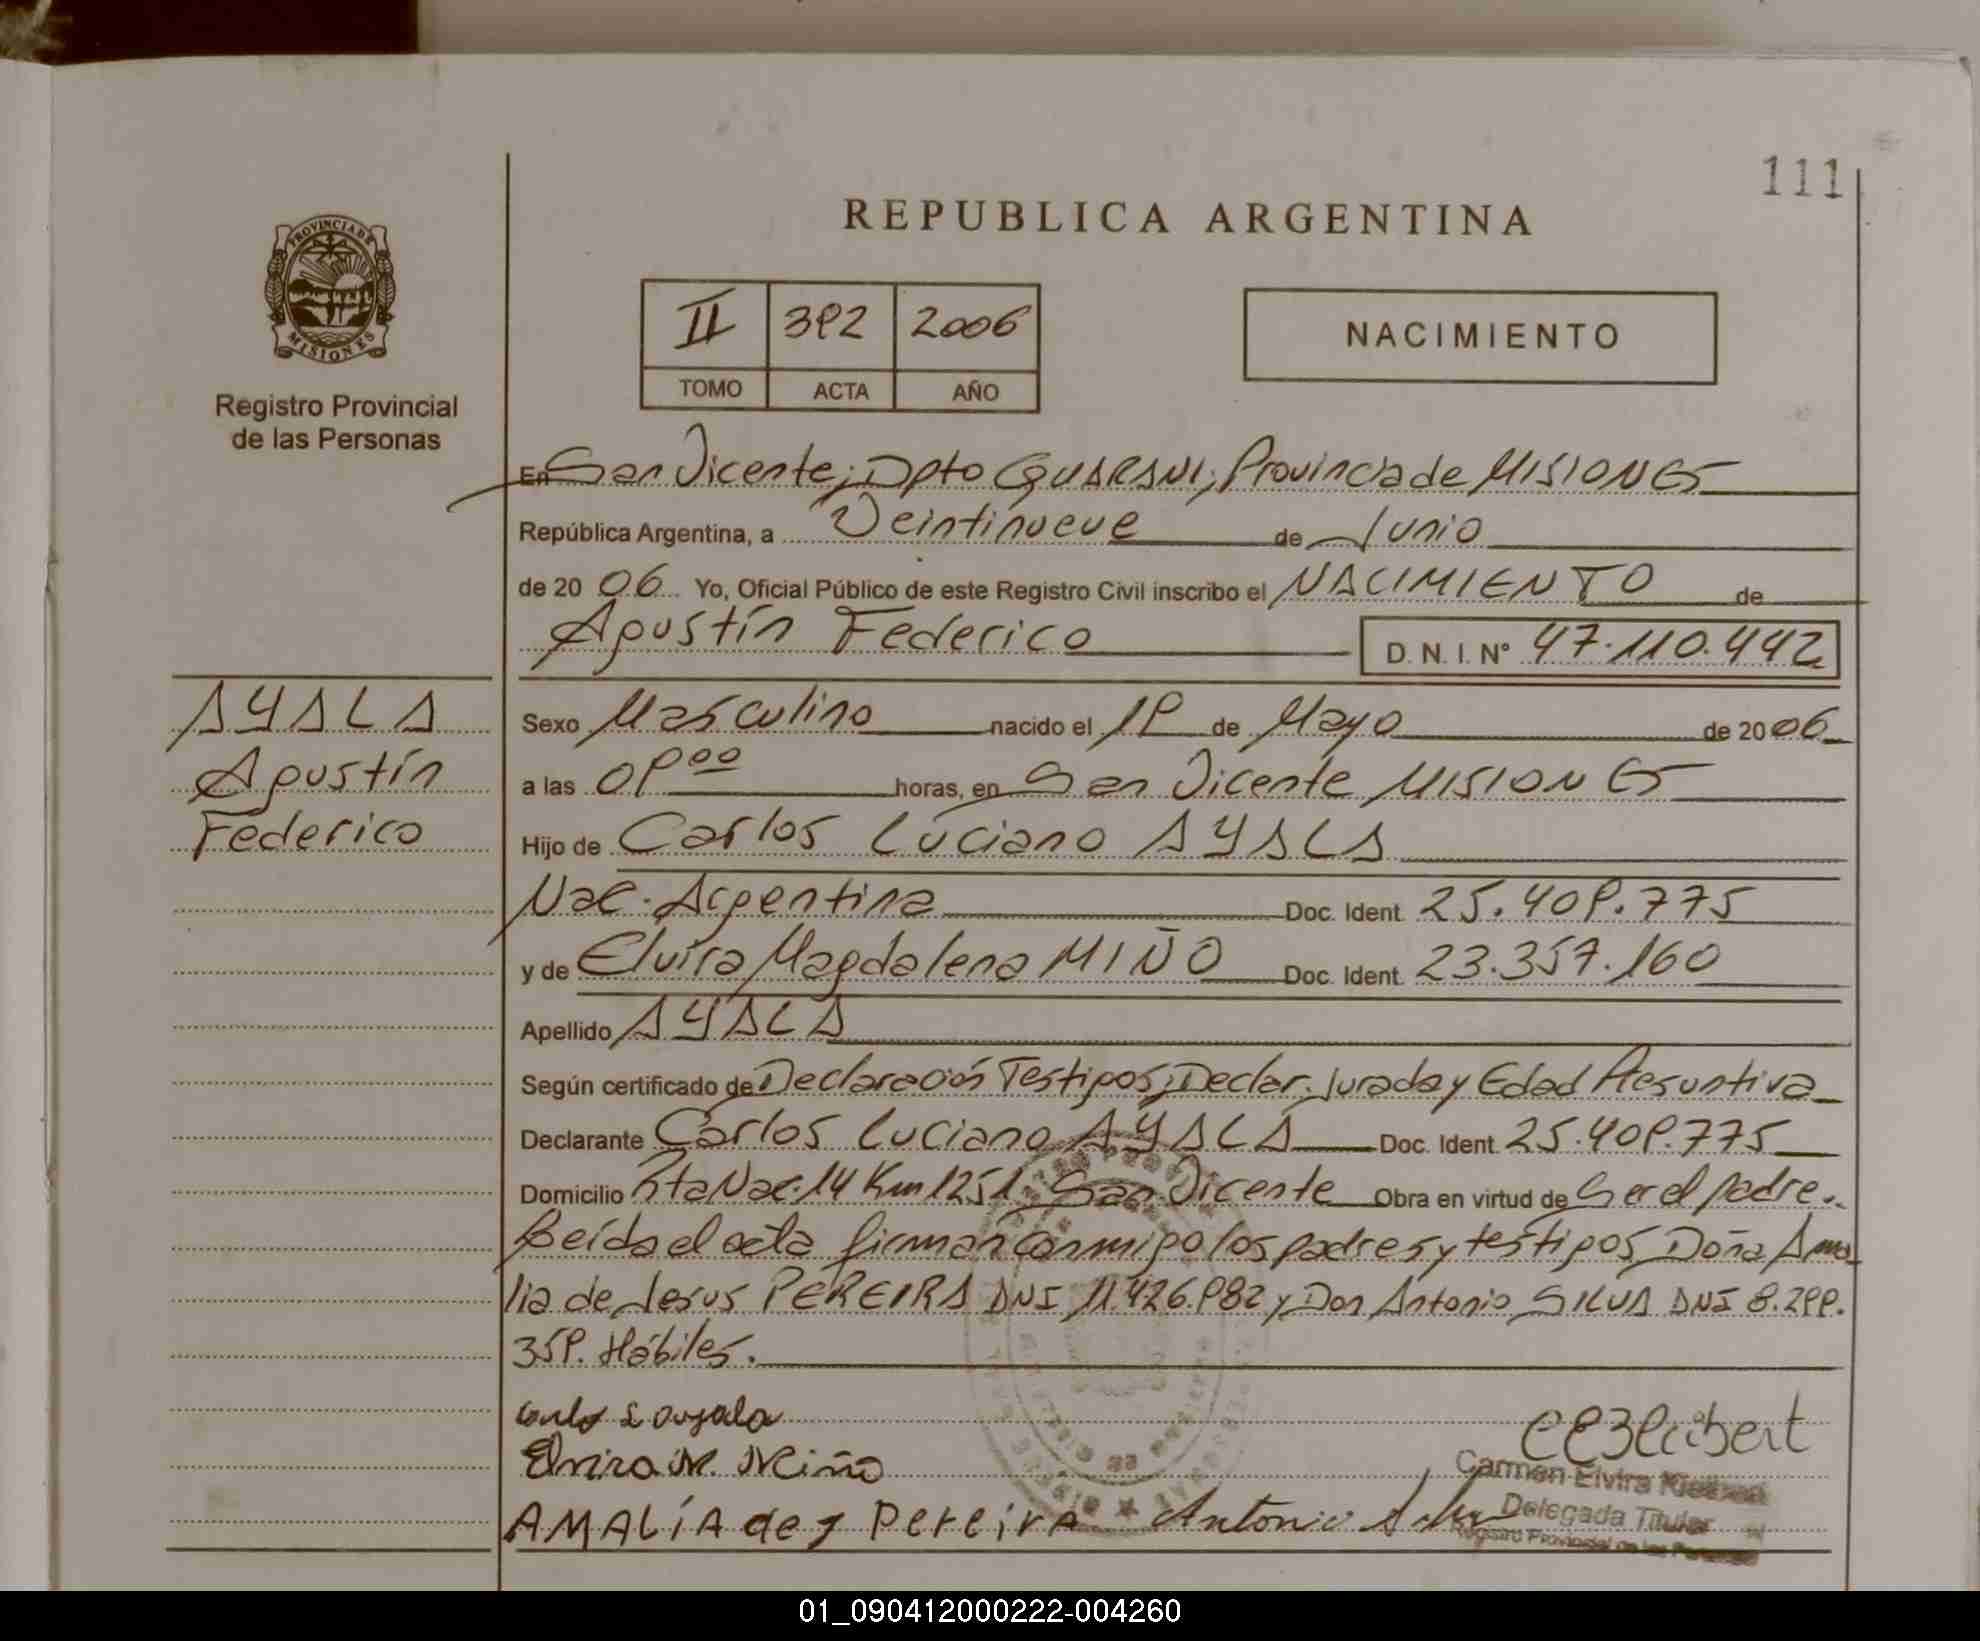 111
PROVINCIA DE
MISIONES
Registro Provincial
de las Personas
REPUBLICA ARGENTINA
II 392 2006
TOMO ACTA AÑO
NACIMIENTO
En San Vicente; Dpto GUARANI; Provincia de MISIONES
República Argentina, a Veintinueve de Junio
de 20 06 Yo, Oficial Público de este Registro Civil inscribo el NACIMIENTO de
Agustín Federico D. N. I. N° 47.110.442
AYALA
Agustín
Federico
Sexo Masculino nacido el 19 de Mayo de 20 06
a las 09 00 horas, en San Vicente MISIONES
Hijo de Carlos Luciano AYALA
Nac. Argentina Doc. Ident. 25.409.775
y de Elvira Magdalena MIÑO Doc. Ident. 23.357.160
Apellido AYALA
Según certificado de Declaración Testigos; Declar. Jurada y Edad Presuntiva
Declarante Carlos Luciano AYALA Doc. Ident. 25.409.775
Domicilio Rta Nac. 14 Km 1251 San Vicente Obra en virtud de Ser el padre.
Leída el acta firman conmigo los padres y testigos Doña Ama
lia de Jesus PEREIRA DNI 11.426.982 y Don Antonio SILVA DNI 8.299.
359. Hábiles.
Carlos L Ayala
Elvira M. Miño
AMALÍA de J Pereira Antonio Silva
Carmen Elvira
Delegada Titular
Registro Provincial de las Personas
01_090412000222-004260